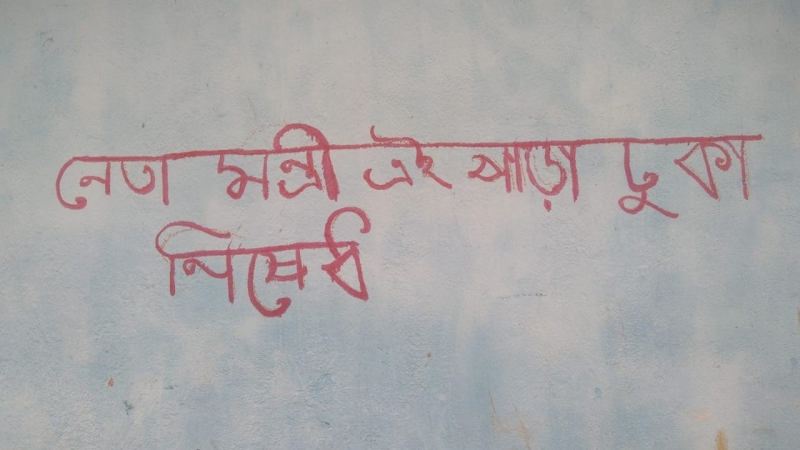 নেতা মন্ত্রী এই পাড়া ঢুকা
নিষেধ